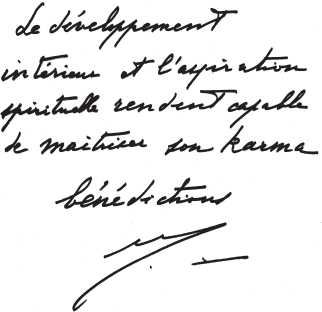 Le développement
intérieur et l'aspiration
spirituelle rendent capable
de maitriser son karma
bénédictions